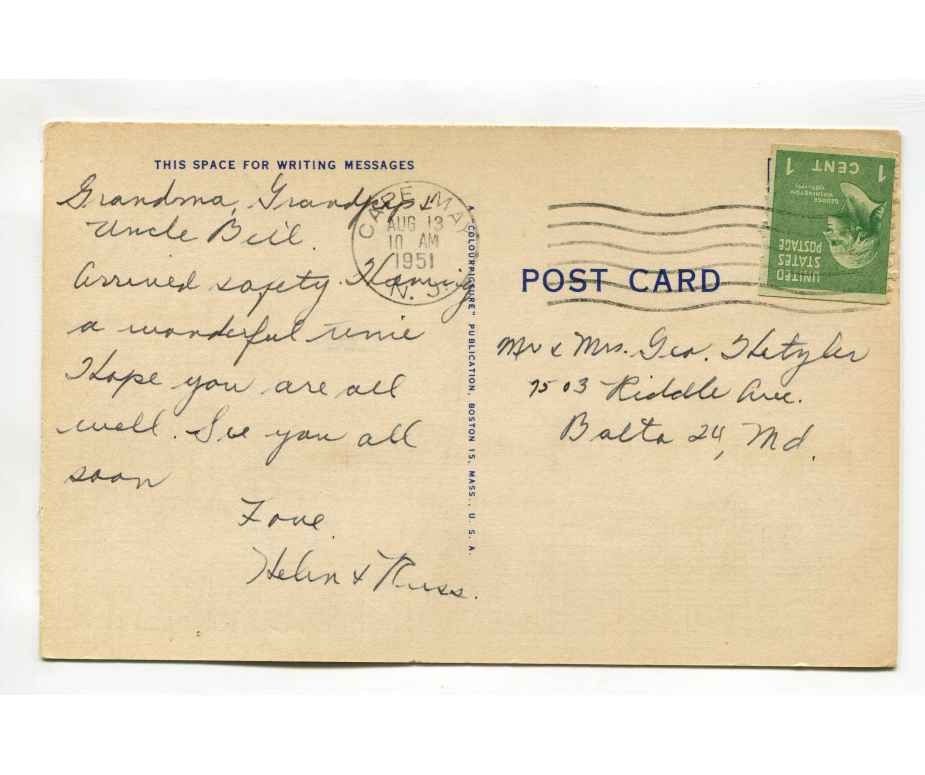 THIS SPACE FOR WRITING MESSAGES
Grandma, Grandpop &
Uncle Bill.
Arrived safety. Having
a wonderful time
Hope you are all
well. See you all
soon
Love
Helen & Russ.
CAPE MAY
AUG 13
10 AM
1951
N. J.
A "COLOURPICTURE" PUBLICATION, BOSTON 15, MASS., U. S. A.
1 CENT 1
GEORGE
WASHINGTON
UNITED
STATES
POSTAGE
POST CARD
Mr & Mrs. Geo. Hetzler
7503 Riddle Ave.
Balto 24, Md.